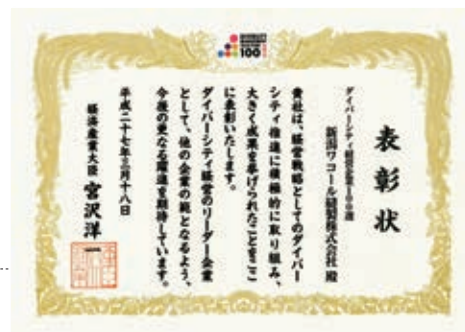 100
表彰状
ダイバーシティ経営企業100選
新潟ワコール縫製株式会社 殿
貴社は、経営戦略としてのダイバー
シティ推進に積極的に取り組み、
大きく成果を挙げられたことをここ
に表彰いたします。
ダイバーシティ経営のリーダー企業
として、他の企業の範となるよう、
今後の更なる躍進を期待しています。
平成二十七年三月十八日
経済産業大臣 宮沢洋一